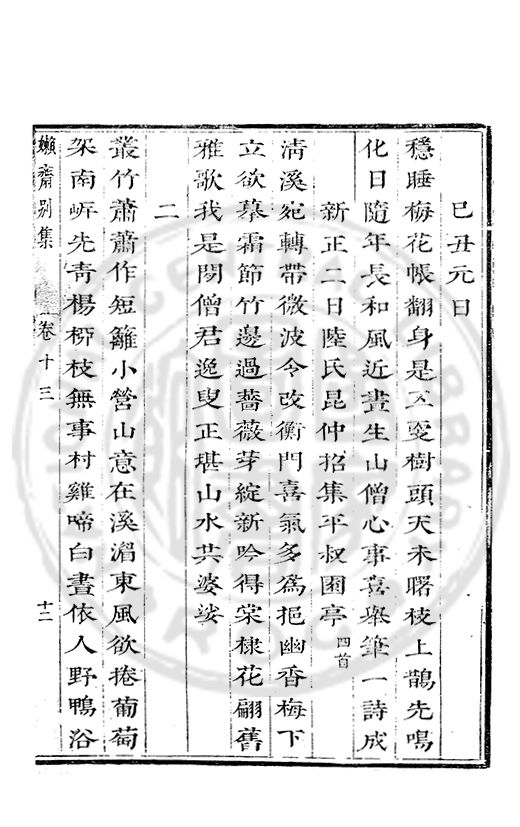 巳丑元日
穩睡梅花帳翻身是五更樹頭天未曙枝上鵲先鳴
化日隨年長和風近晝生山僧心事喜舉筆一詩成
新正二日陸氏昆仲招集平叔園亭 四首
清溪宛轉帶微波令改衡門喜氣多為挹幽香梅下
立欲慕霜節竹邊過薔薇芽綻新吟得棠棣花翩舊
雅歌我是閒僧君逸叟正堪山水共婆娑
二
叢竹蕭蕭作短籬小營山意在溪湄東風欲捲葡萄
架南岍先青楊柳枝無事村雞啼白晝依人野鴨浴
嬾齋别集 卷十三 十二